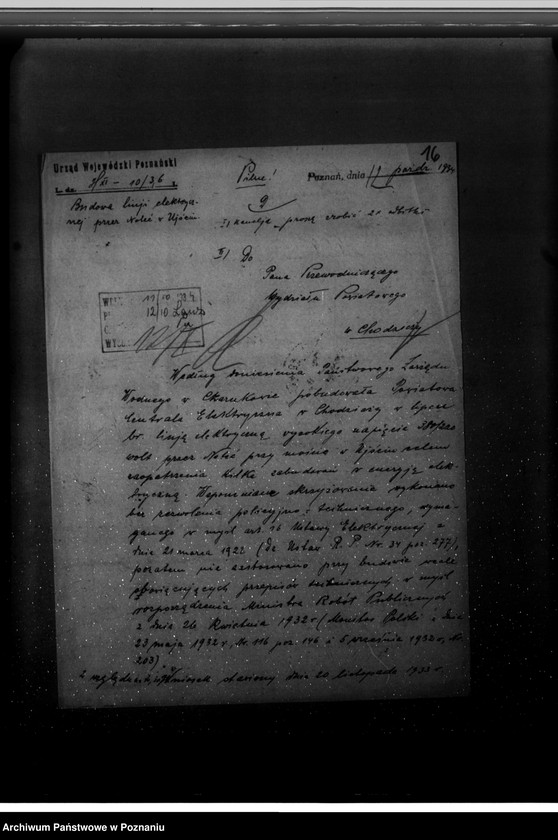 16
Urząd Wojewódzki Poznański
Pilne!
Poznań, dnia 11 paźdz. 193
L. dz. 10/36
Budowa linji elektrycz-
nej przez Noteć w Ujściu
I)
proszę zrobić 20
II) Do
Pana Przewodniczącego
Wydziału Powiatowego
w Chodzieży
11/10
12/10
Według doniesienia Państwowego Zarządu
Wodnego w Czarnkowie pobudowała Powiatowa
Centrala Elektryczna w Chodzieży w lipcu
br. linję elektryczną wysokiego napięcia
wolt przez Noteć przy moście w Ujściu celem
zaopatrzenia kilku zabudowań w energję elek-
tryczną. Wspomniane skrzyżowanie wykonano
bez zezwolenia policyjno-technicznego, wyma-
ganego w myśl art. 16 Ustawy Elektrycznej z
dnia 21 marca 1922 (Dz. Ustaw R. P. Nr. 34 poz. 277),
pozatem nie zastosowano przy budowie wcale
obowiązujących przepisów technicznych w myśl
rozporządzenia Ministra Robót Publicznych
z dnia 26 kwietnia 1932 r (Monitor Polski z dnia
23 maja 1932 r. Nr. 116 poz. 146 i 6 września 1932 r, Nr.
203).
wniosek stawiony dnia 20 listopada 1933 r.
Archiwum Państwowe w Poznaniu